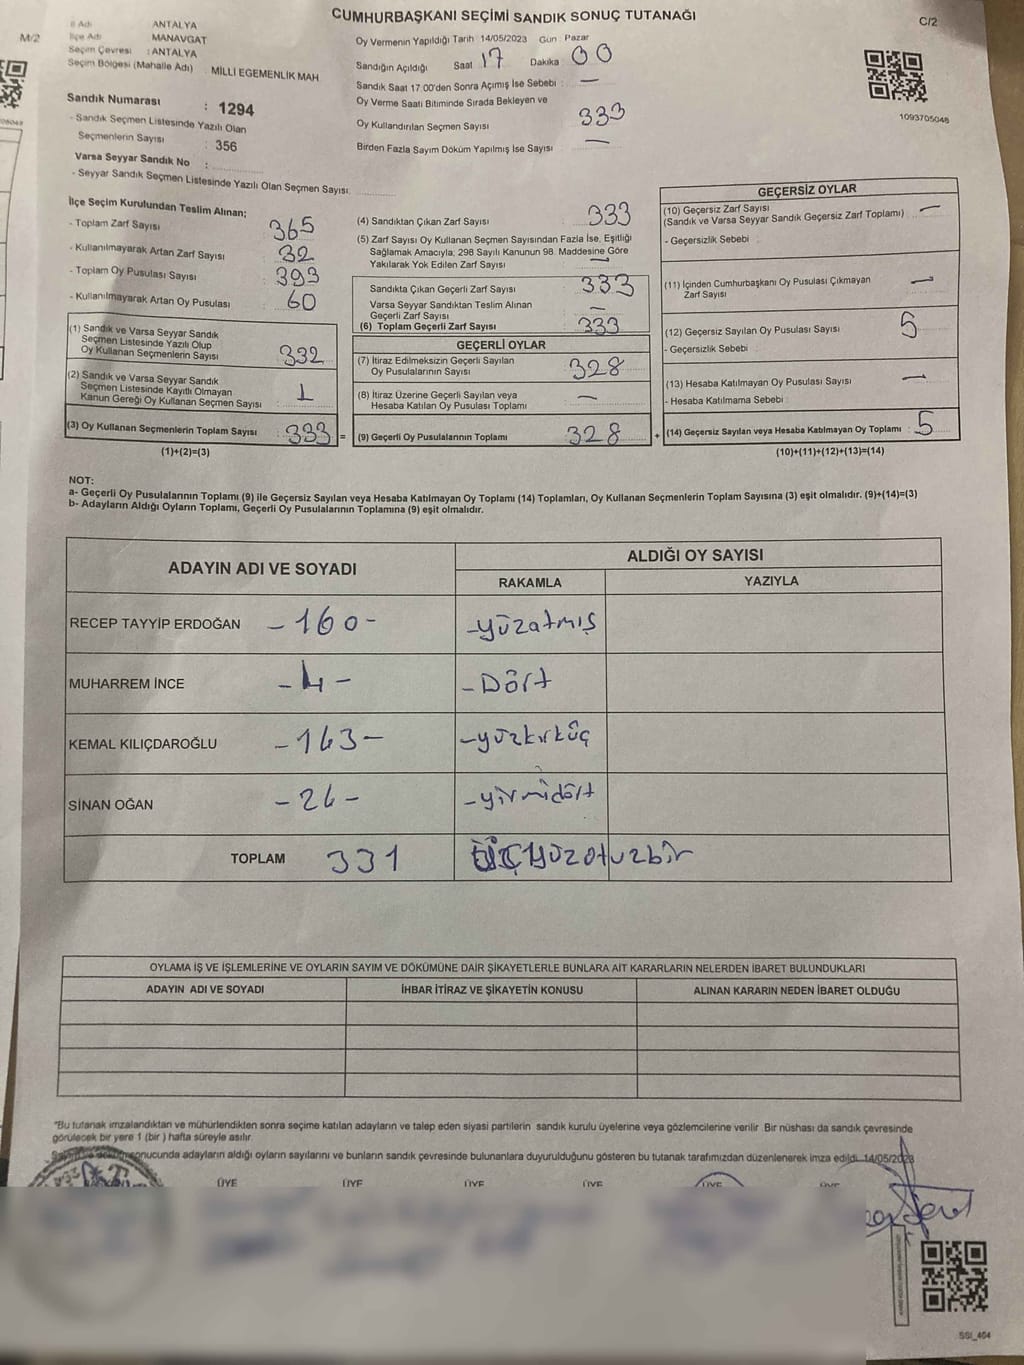 CUMHURBAŞKANI SEÇİMİ SANDIK SONUÇ TUTANAĞI
C/2
M/2
İl Adı ANTALYA
İlçe Adı MANAVGAT
Seçim Çevresi : ANTALYA
Seçim Bölgesi (Mahalle Adı) : MİLLİ EGEMENLİK MAH
Sandık Numarası : 1294
- Sandık Seçmen Listesinde Yazılı Olan
Seçmenlerin Sayısı : 356
Varsa Seyyar Sandık No :
- Seyyar Sandık Seçmen Listesinde Yazılı Olan Seçmen Sayısı:
Oy Vermenin Yapıldığı Tarih 14/05/2023 Gün : Pazar
Sandığın Açıldığı Saat 17 Dakika 00
Sandık Saat 17.00'den Sonra Açımış İse Sebebi : —
Oy Verme Saati Bitiminde Sırada Bekleyen ve
Oy Kullandırılan Seçmen Sayısı 333
Birden Fazla Sayım Döküm Yapılmış İse Sayısı —
1093705048
İlçe Seçim Kurulundan Teslim Alınan;
- Toplam Zarf Sayısı : 365
- Kullanılmayarak Artan Zarf Sayısı : 32
- Toplam Oy Pusulası Sayısı : 393
- Kullanılmayarak Artan Oy Pusulası : 60
(1) Sandık ve Varsa Seyyar Sandık
Seçmen Listesinde Yazılı Olup
Oy Kullanan Seçmenlerin Sayısı : 332
(2) Sandık ve Varsa Seyyar Sandık
Seçmen Listesinde Kayıtlı Olmayan
Kanun Gereği Oy Kullanan Seçmen Sayısı : 1
(3) Oy Kullanan Seçmenlerin Toplam Sayısı : 333 =
(1)+(2)=(3)
(4) Sandıktan Çıkan Zarf Sayısı : 333
(5) Zarf Sayısı Oy Kullanan Seçmen Sayısından Fazla İse, Eşitliği
Sağlamak Amacıyla, 298 Sayılı Kanunun 98. Maddesine Göre
Yakılarak Yok Edilen Zarf Sayısı : —
Sandıkta Çıkan Geçerli Zarf Sayısı : 333
Varsa Seyyar Sandıktan Teslim Alınan
Geçerli Zarf Sayısı : —
(6) Toplam Geçerli Zarf Sayısı : 333
GEÇERLİ OYLAR
(7) İtiraz Edilmeksizin Geçerli Sayılan
Oy Pusulalarının Sayısı : 328
(8) İtiraz Üzerine Geçerli Sayılan veya
Hesaba Katılan Oy Pusulası Toplamı : —
(9) Geçerli Oy Pusulalarının Toplamı : 328 +
GEÇERSİZ OYLAR
(10) Geçersiz Zarf Sayısı
(Sandık ve Varsa Seyyar Sandık Geçersiz Zarf Toplamı) : —
- Geçersizlik Sebebi :
(11) İçinden Cumhurbaşkanı Oy Pusulası Çıkmayan
Zarf Sayısı : —
(12) Geçersiz Sayılan Oy Pusulası Sayısı : 5
- Geçersizlik Sebebi :
(13) Hesaba Katılmayan Oy Pusulası Sayısı : —
- Hesaba Katılmama Sebebi :
(14) Geçersiz Sayılan veya Hesaba Katılmayan Oy Toplamı : 5
(10)+(11)+(12)+(13)=(14)
NOT:
a- Geçerli Oy Pusulalarının Toplamı (9) ile Geçersiz Sayılan veya Hesaba Katılmayan Oy Toplamı (14) Toplamları, Oy Kullanan Seçmenlerin Toplam Sayısına (3) eşit olmalıdır. (9)+(14)=(3)
b- Adayların Aldığı Oyların Toplamı, Geçerli Oy Pusulalarının Toplamına (9) eşit olmalıdır.
ADAYIN ADI VE SOYADI
ALDIĞI OY SAYISI
RAKAMLA YAZIYLA
RECEP TAYYİP ERDOĞAN - 160 - - yüzatmış
MUHARREM İNCE - 4 - - Dört
KEMAL KILIÇDAROĞLU - 143 - - yüzkırküç
SİNAN OĞAN - 24 - - yirmidört
TOPLAM 331 üçyüzotuzbir
OYLAMA İŞ VE İŞLEMLERİNE VE OYLARIN SAYIM VE DÖKÜMÜNE DAİR ŞİKAYETLERLE BUNLARA AİT KARARLARIN NELERDEN İBARET BULUNDUKLARI
ADAYIN ADI VE SOYADI İHBAR İTİRAZ VE ŞİKAYETİN KONUSU ALINAN KARARIN NEDEN İBARET OLDUĞU
"Bu tutanak imzalandıktan ve mühürlendikten sonra seçime katılan adayların ve talep eden siyasi partilerin sandık kurulu üyelerine veya gözlemcilerine verilir Bir nüshası da sandık çevresinde
görülecek bir yere 1 (bir ) hafta süreyle asılır.
sonucunda adayların aldığı oyların sayılarını ve bunların sandık çevresinde bulunanlara duyurulduğunu gösteren bu tutanak tarafımızdan düzenlenerek imza edildi. 14/05/2023
ÜYE ÜYE ÜYE ÜYE ÜYE ÜYE
SSI_464